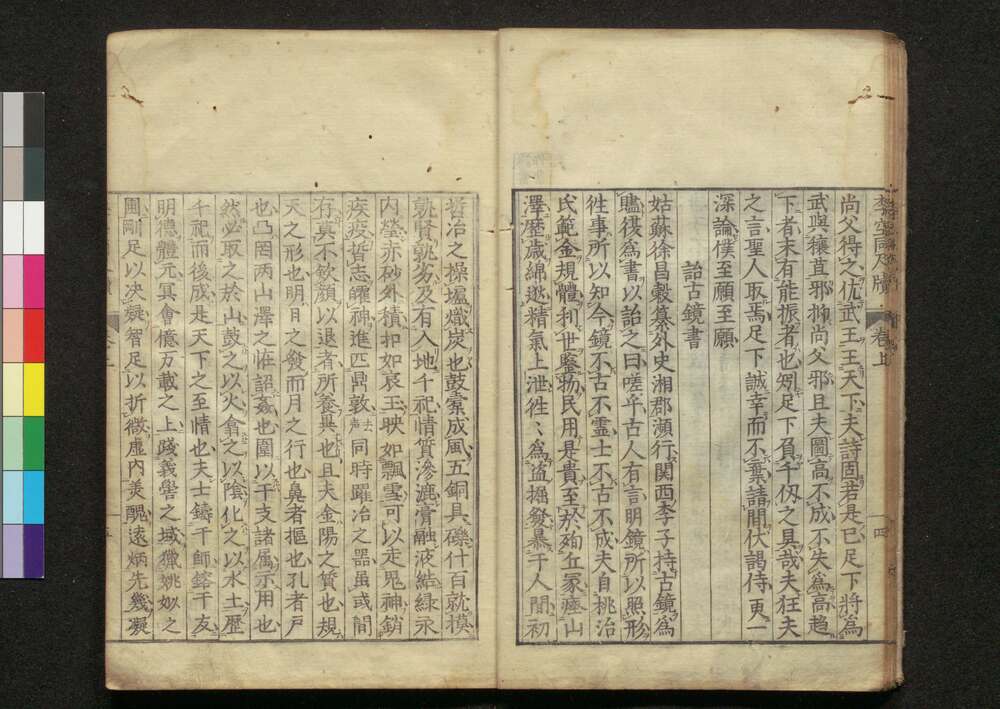 李空同尺牘　卷上　四
尚父得之佐武王王天下夫詩固若是已足下將爲
武與穰苴邪抑尚父邪且夫圖高不成不失爲高趨
下者未有能振者也矧足下負千仭之具哉夫狂夫
之言聖人取焉足下誠幸而不棄請間伏謁侍更一
深論僕至願至願
詒古鏡書
姑蘇徐昌榖纂外史湘郡瀕行関西李子持古鏡爲
贐復爲書以詒之曰嗟乎古人有言明鏡所以照形
徃事所以知今鏡不古不霊士不古不成夫自桃治
氏範金規體利世鑒物民用是貴至於殉丘冢瘞山
澤歴歳綿邈精氣上泄徃〻爲盗掘發暴于人間初
哲冶之操壚熾炭也鼓橐成風五銅具礫什百就摸
孰賢孰劣及有入地千祀情質滲漉膏融液結緑永
内瑩赤砂外積扣如哀玉映如飄雪可以走鬼神銷
疾疫哲志皭神進匹鼎敦去声同時躍冶之器虽或間
有莫不欽顔以退者所養異也且夫金陽之質也規
天之形也明日之發而月之行也鼻者摳也孔者戸
也凸罔兩山澤之恠詔姦也圍以干支諸属示用也
然必取之於山鼓之以火會之以陰化之以水土歴
千祀而後成是天下之至情也夫士鑄于師鎔于友
明德體元冥會億万載之上踐義嚳之域獵姚姒之
圃剛足以决疑智足以折微虚内美醜遠炳先幾凝